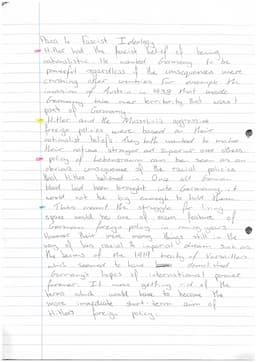 Para 1: Fascist Ideology
Hitler had the fascist belief of being
nationalistic. He wanted Germany to be
powerful regardless of the consequences were
crushing other countries. For example the
invasion of Austria in 1938 that made
Germany take over territory that wasn't
part of Germany.
Hitler and the Mussolini's aggressive
foreign policies were based on their
nationalist beliefs they both wanted to make
their nations stronger and superior over others.
policy of Lebensraum can be seen as an
obvious consequence of the racial policies
that Hitler believed in. Once all German
blood had been brought into Germany, it
would not be big enough to hold them.
This meant the struggle for living
space would be one of main feature of
German foreign policy in coming years.
However there were many things still in the
way of his racial & imperial dream such as
the terms of the 1919 treaty of Versailles
which seemed to have demolished
Germany's hopes of international power
forever. It was getting rid of the
terms which would have to become the
more immediate short-term aim of
Hitler's foreign policy.